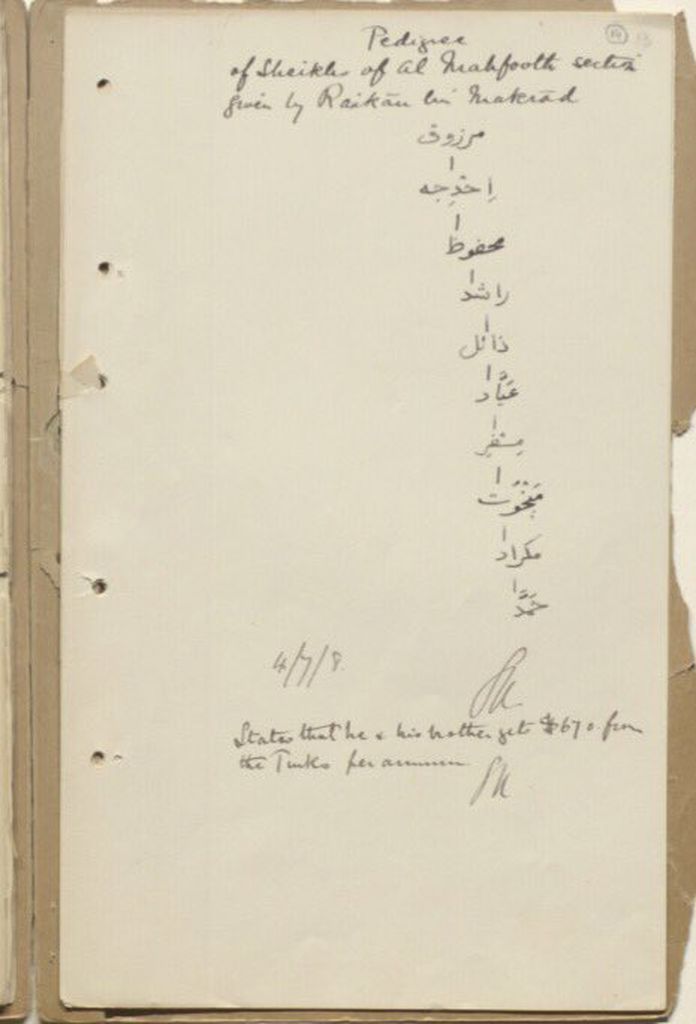 Pedigree
of Sheikhs of Al Mahfooth section
given by Raikān bin Makrād
مرزوق
اِخدِجه
محفوظ
راشد
ذائل
عَبَّاد
مِسْفِر
مَبْخُوت
مكراد
4/7/8.
States that he & his brother gets $670 from
the Turks per annum